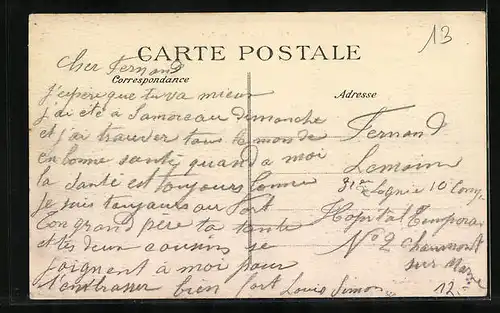 13
CARTE POSTALE
Cher Fernand
Correspondance
Adresse
j'espère que tu va mieux
j'ai été a Samoreau dimanche
et j'ai trouver tous le monde
en bonne santé quand a moi
la santé est toujours bonne
je suis toujours au Fort
ton grand père ta tante
et tes deux cousins se
joignent a moi pour
t'embrasser bien fort Louis Simon
Fernand
Lemoin
31em 10 Comp.
Hopital Tempora
No 2 Chaumont
sur Marne
12